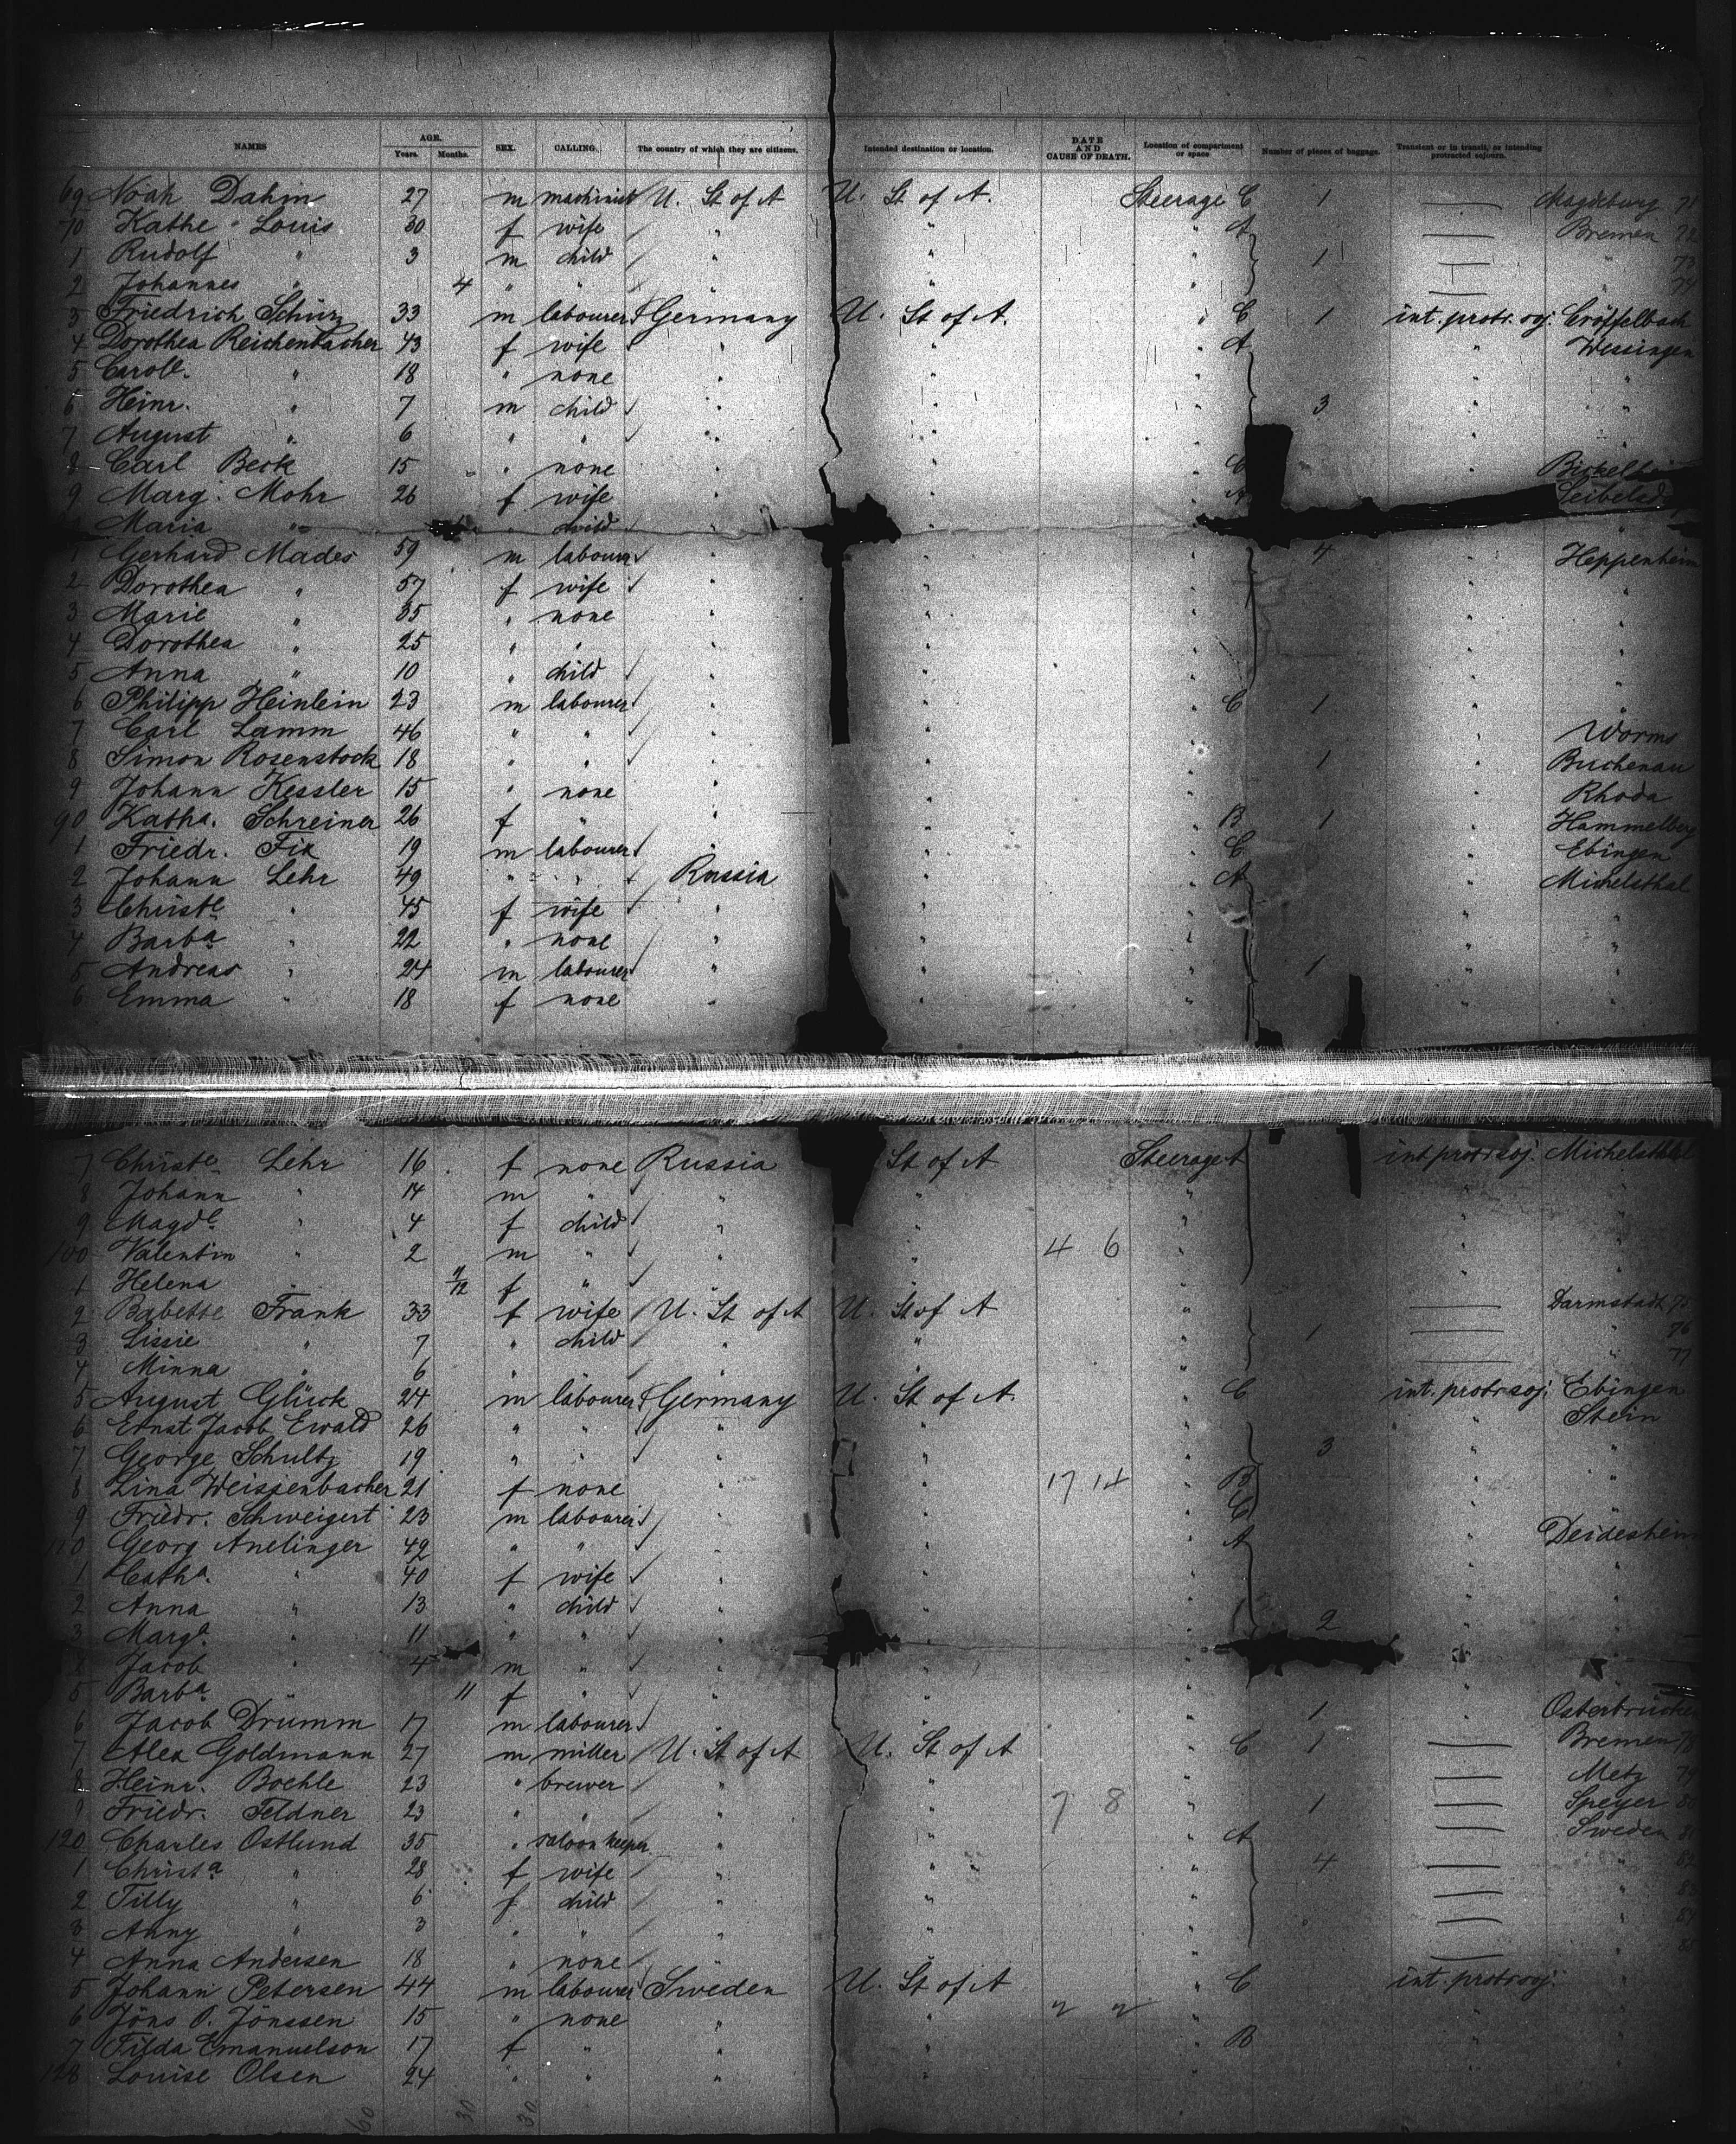 NAMES AGE. Years. Months. SEX. CALLING. The country of which they are citizens. Intended destination or location. DATE AND CAUSE OF DEATH. Location of compartment or space Number of pieces of baggage. Transient or in transit, or intending protracted sojourn.
69 Noah Dahin 27 m machinist U. St of A U. St of A. Steerage C 1 — Magdeburg 71
70 Kathe Louis 30 f wife " " " A — Bremen 72
1 Rudolf " 3 m child " " " 1 — " 73
2 Johannes " 4 " " " " " — " 74
3 Friedrich Schürz 33 m labourer Germany U. St of A. " C 1 int. protr. soj. Cröffelbach
4 Dorothea Reichenbacher 43 f wife " " " A " Wessingen
5 Carole. " 18 " none " " " " "
6 Heinr. " 7 m child " " " 3 " "
7 August " 6 " " " " " " "
8 Carl Beck 15 " none " " " C
9 Marg. Mohr 26 f wife " " " A
Maria " " child " "
1 Gerhard Mades 59 m labourer " " " 4 " Heppenheim
2 Dorothea " 57 f wife " " " " "
3 Marie " 35 " none " " " " "
4 Dorothea " 25 " " " " " " "
5 Anna " 10 " child " " " " "
6 Philipp Heinlein 23 m labourer " " " C 1 " "
7 Carl Lamm 46 " " " " " " Worms
8 Simon Rosenstock 18 " " " " " 1 " Buchenau
9 Johann Kessler 15 " none " " " " Rhoda
90 Katha. Schreiner 26 f " " " " B 1 " Hammelberg
1 Friedr. Fix 19 m labourer " " " C " Ebingen
2 Johann Lehr 49 " " Russia " " A " Michelsthal
3 Christe " 45 f wife " " " " "
4 Barba " 22 " none " " " " "
5 Andreas " 24 m labourer " " " 1 " "
6 Emma " 18 f none " " " " "
7 Christe Lehr 16 f none Russia St of A Steerage A int protr soj. Michelsthal
8 Johann " 14 m " " " " " "
9 Magde. " 4 f child " " " " "
100 Valentin " 2 m " " " 4 6 " " "
1 Helena " 11/12 f " " " " " "
2 Babette Frank 33 f wife U. St of A U. St of A " — Darmstadt 75
3 Lissie " 7 " child " " " 1 — " 76
4 Minna " 6 " " " " " — " 77
5 August Glück 24 m labourer Germany U. St of A. " C int. protr soj. Ebingen
6 Ernst Jacob Ewald 26 " " " " " " Stein
7 George Schultz 19 " " " " " 3 " "
8 Lina Weissenbacher 21 f none " " 17 14 " B " "
9 Friedr. Schweigert 23 m labourer " " " C " "
110 Georg Anelinger 42 " " " " " A " Deidesheim
1 Catha. " 40 f wife " " " " "
2 Anna " 13 " child " " " 2 " "
3 Marga. " 11 " " " " " " "
Jacob " 4 m " " " " "
5 Barba " 11 f " " " " " "
6 Jacob Drumm 17 m labourer " " " 1 "
7 Alex Goldmann 27 m miller U. St of A U. St of A " C 1 — Bremen 78
8 Heinr. Bochle 23 " brewer " " " — Metz 79
9 Friedr. Feldner 23 " " " " 7 8 " 1 — Speyer 80
120 Charles Ostlund 35 " saloon keeper " " " A — Sweden 81
1 Christa " 28 f wife " " " 4 — " 82
2 Tilly " 6 f child " " " — " 83
3 Anny " 3 " " " " " — " 84
4 Anna Andersen 18 " none " " " — " 85
5 Johann Petersen 44 m labourer Sweden U. St of A " C int. protr soj. "
6 Jöns P. Jönssen 15 " none " " " " "
7 Tilda Emanuelson 17 f " " " " B " "
128 Louise Olsen 24 " " " " " "
60 30 30